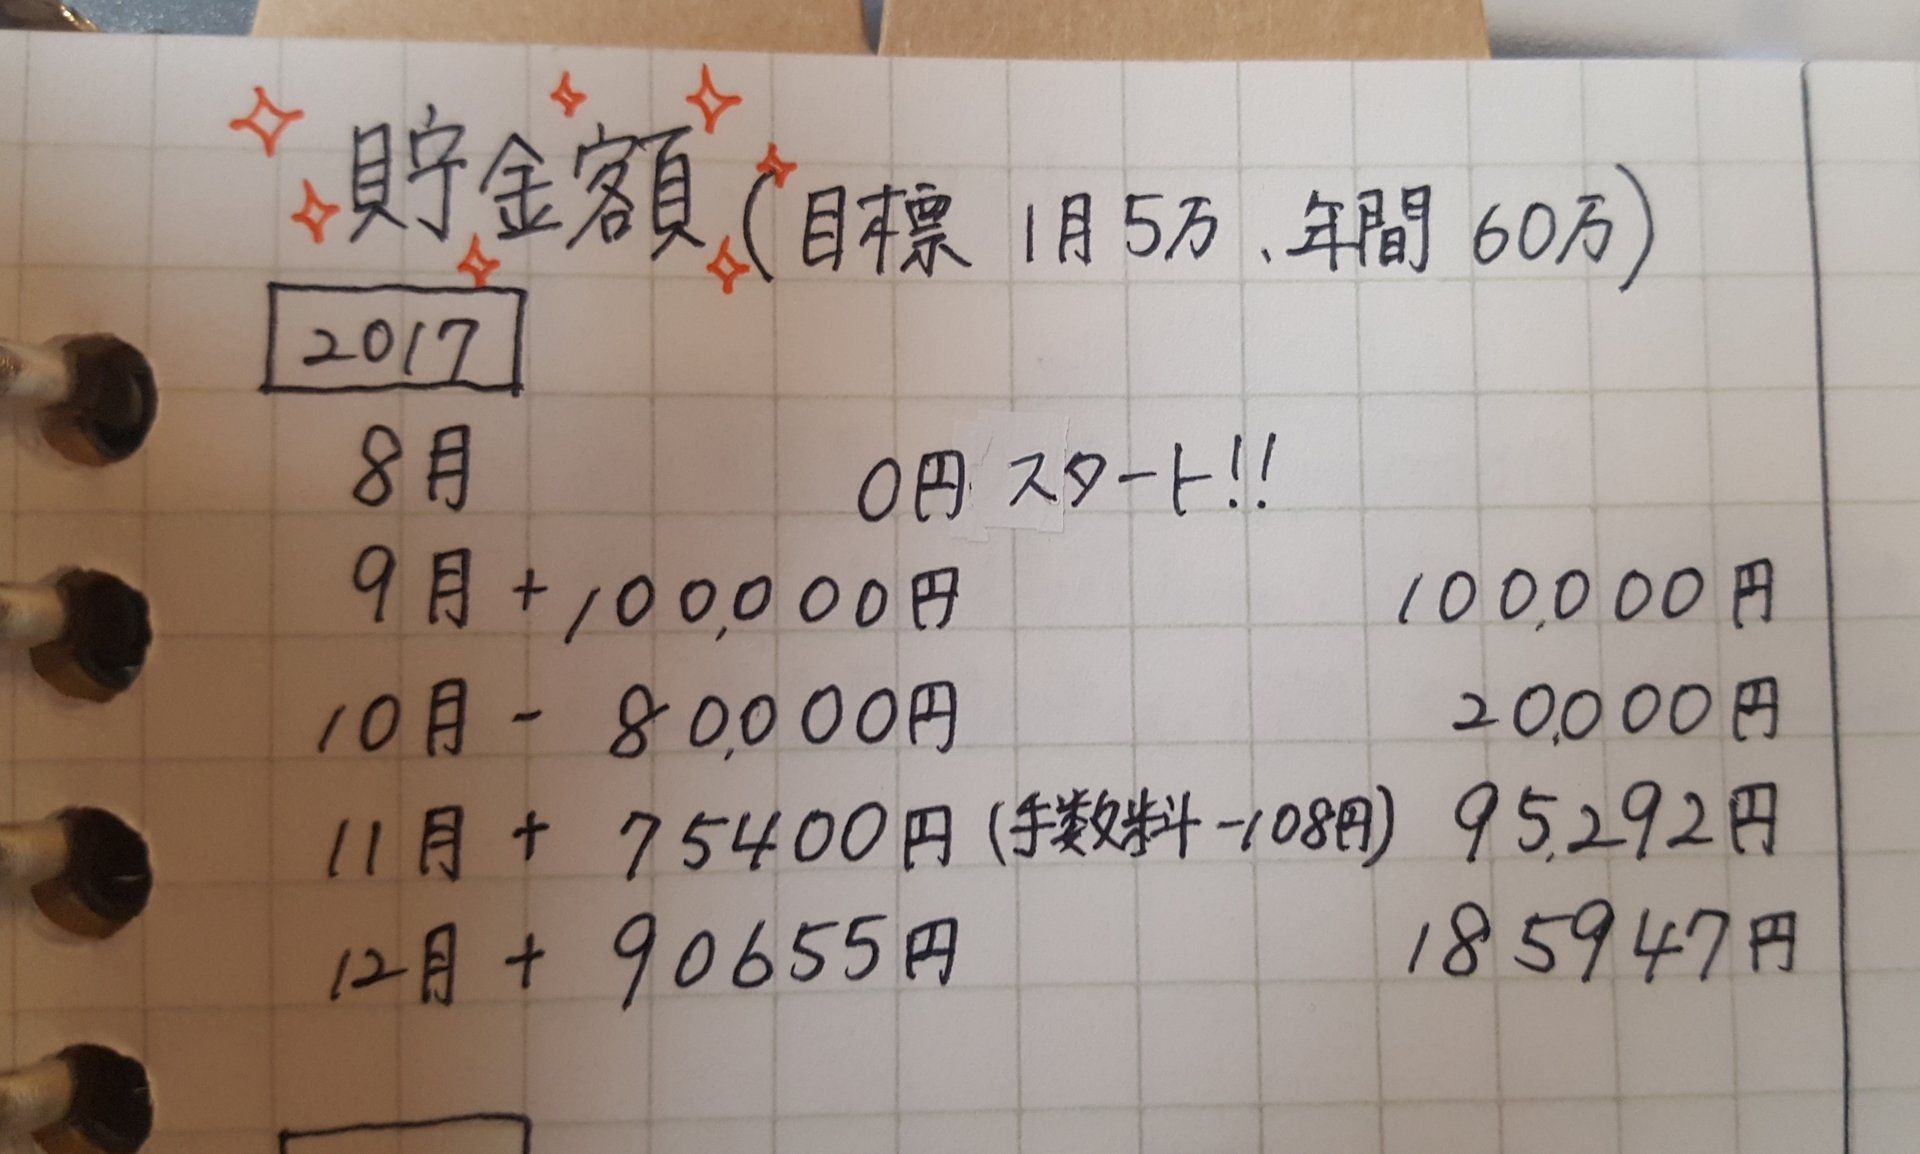 貯金額(目標 1月5万、年間 60万)
2017
8月 0円 スタート!!
9月 + 100,000円 100,000円
10月 - 80,000円 20,000円
11月 + 75400円 (手数料 -108円) 95,292円
12月 + 90655円 185947円